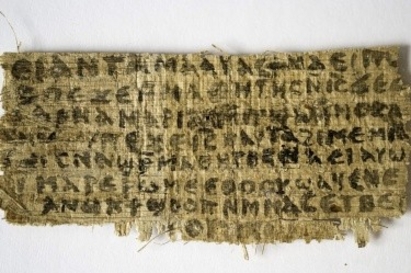 ⲛⲁⲉⲓ ⲁⲛ ⲧⲁⲙⲁⲁⲩ ⲁⲥϯ ⲛⲁⲉⲓ ⲡⲱ
ⲡⲉϫⲉ ⲙⲙⲁⲑⲏⲧⲏⲥ ⲛⲓⲥ ϫⲉ
ⲁⲣⲛⲁ ⲙⲁⲣⲓⲁⲙ ⲙⲡϣⲁ ⲙⲙⲟⲥ
ⲡⲉϫⲉ ⲓⲥ ⲛⲁⲩ ⲧⲁϩⲓⲙⲉ ⲙⲛ
ⲥⲛⲁϣⲣⲙⲁⲑⲏⲧⲏⲥ ⲛⲁⲉⲓ ⲁⲩⲱ
ⲙⲁⲣⲉⲣⲱⲙⲉ ⲉⲑⲟⲟⲩ ϣⲁϥⲉⲛⲉ
ⲁⲛⲟⲕ ϯϣⲟⲟⲡ ⲛⲙⲙⲁⲥ ⲉⲧⲃⲉ